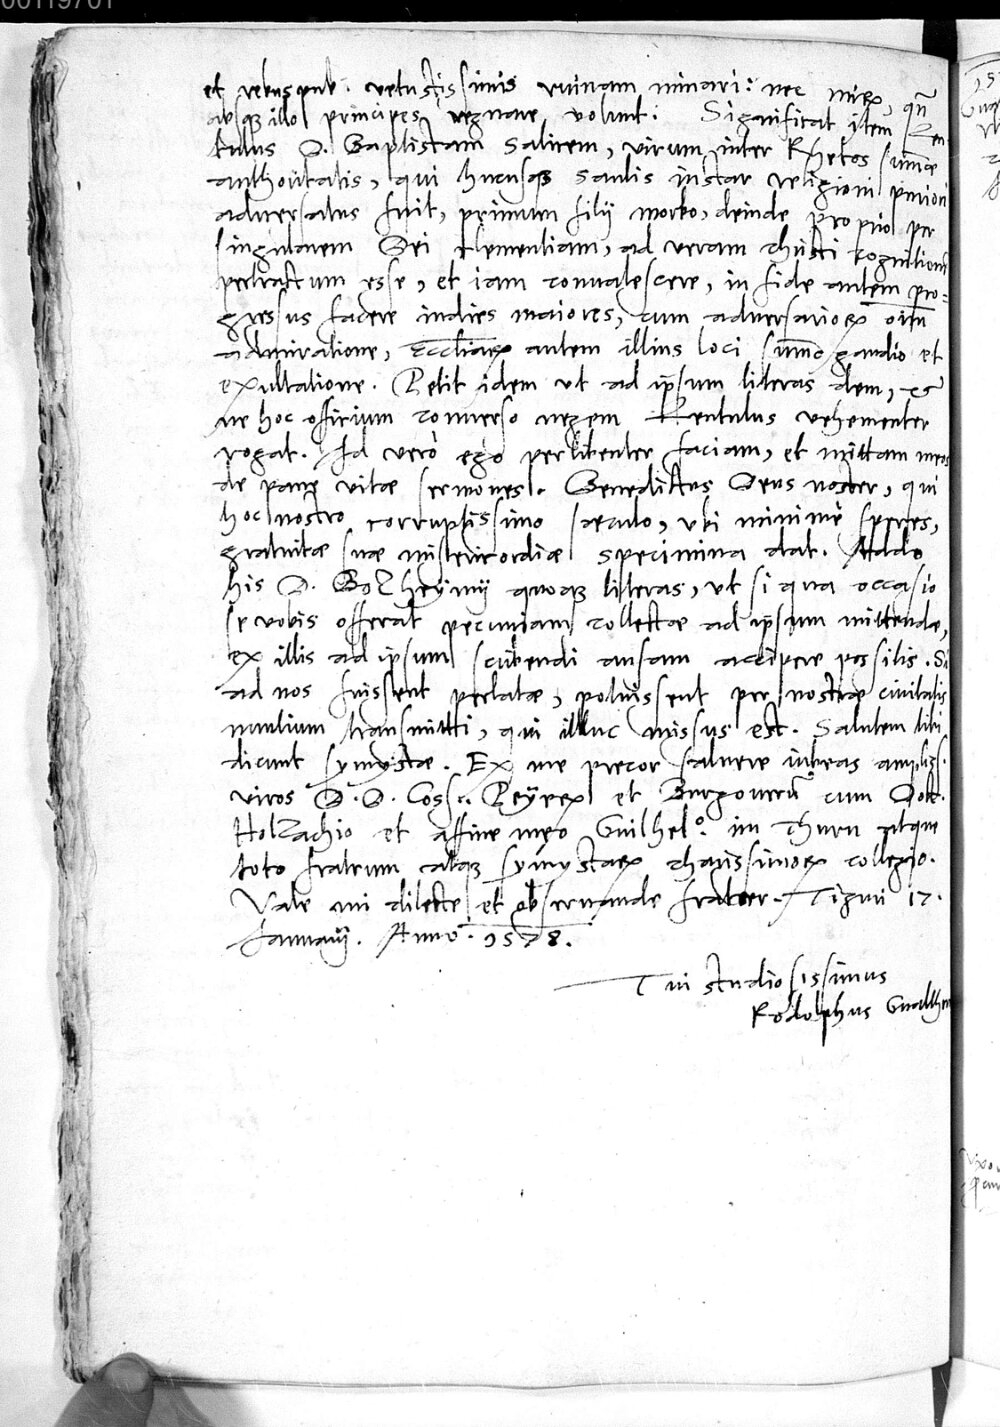 et rebuspub. vetustissimis ruinam minari: nec mirũ, qũ
absq̃ illo principes regnare volunt. Significat item Len
tulus D. Baptistam Salicem, virum inter Rhetos sum̃æ
authoritatis, qui hucusq̃ Saulis instar religioni puriori
adversatus fuit, primum filij morbo, deinde proprio per
singularem Dei clementiam, ad veram christi cognitionem
pertractum esse, et iam convalescere, in fide autem pro-
gressus facere indies maiores, cum adversarioꝝ oĩm
admiratione, Eccl̃iaꝝ autem illius loci sum̃o gaudio et
exultatione. Petit idem ut ad ipsum literas dem,
ne hoc officium converso negem Lentulus vehementer
rogat. Id verò ego perlibenter faciam, et mittam meos
de pane vitæ sermones. Benedictus Deus noster, qui
hoc nostro corruptissimo sæculo, ubi minimè speres,
gratuitæ suæ misericordiæ specimina dat. Addo
his D. Bolzheymij quoq̃ literas, ut si qua occasio
se vobis offerat pecuniam collectæ ad ipsum mittendæ,
ex illis ad ipsum scribendi ansam accipere possitis. Si
ad nos fuissent perlatæ, potuissent per nostræ civitatis
nuntium transmitti, qui illuc missus est. Salutem tibi
dicunt symystæ. Ex me precor salvere iubeas ampliss.
viros D. D. Coss. et Burgouerũ cum Doct.
Holzachio et affine meo Guilhel.º im Thurn atque
toto fratrum atq̃ symystaꝝ charissimoꝝ collegio.
Vale mi dilecte et observande frater. Tiguri 17.
Januarij. Anno. 1578.
Tui studiosissimus
Rodolphus Gualther